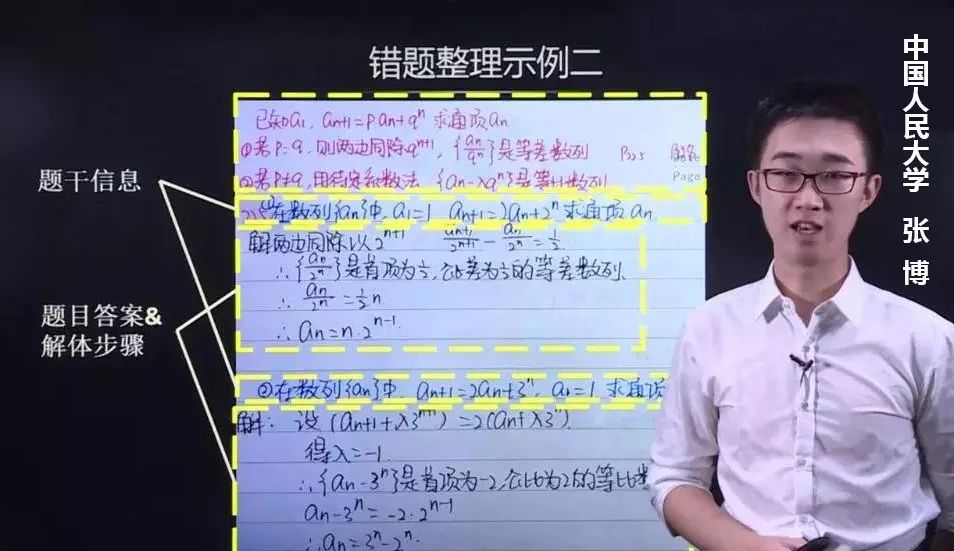 错题整理示例二
中国人民大学 张 博
题干信息
题目答案&
解体步骤
已知a₁, aₙ₊₁=paₙ+qⁿ 求通项aₙ
①若p=q,则两边同除qⁿ⁺¹,{aₙ/qⁿ}是等差数列
②若p≠q,用待定系数法 {aₙ-λqⁿ}是等比数列
①在数列{aₙ}中,a₁=1 aₙ₊₁=2aₙ+2ⁿ 求通项aₙ
解两边同除以2ⁿ⁺¹ aₙ₊₁/2ⁿ⁺¹ - aₙ/2ⁿ = 1/2
∴{aₙ/2ⁿ}是首项为1/2,公差为1/2的等差数列
∴ aₙ/2ⁿ = 1/2 n
∴ aₙ=n·2ⁿ⁻¹
②在数列{aₙ}中,aₙ₊₁=2aₙ+3ⁿ,a₁=1 求通项
解:设(aₙ₊₁+λ3ⁿ⁺¹)=2(aₙ+λ3ⁿ)
得λ=-1
∴{aₙ-3ⁿ}是首项为-2,公比为2的等比
aₙ-3ⁿ=-2·2ⁿ⁻¹
∴aₙ=3ⁿ-2ⁿ